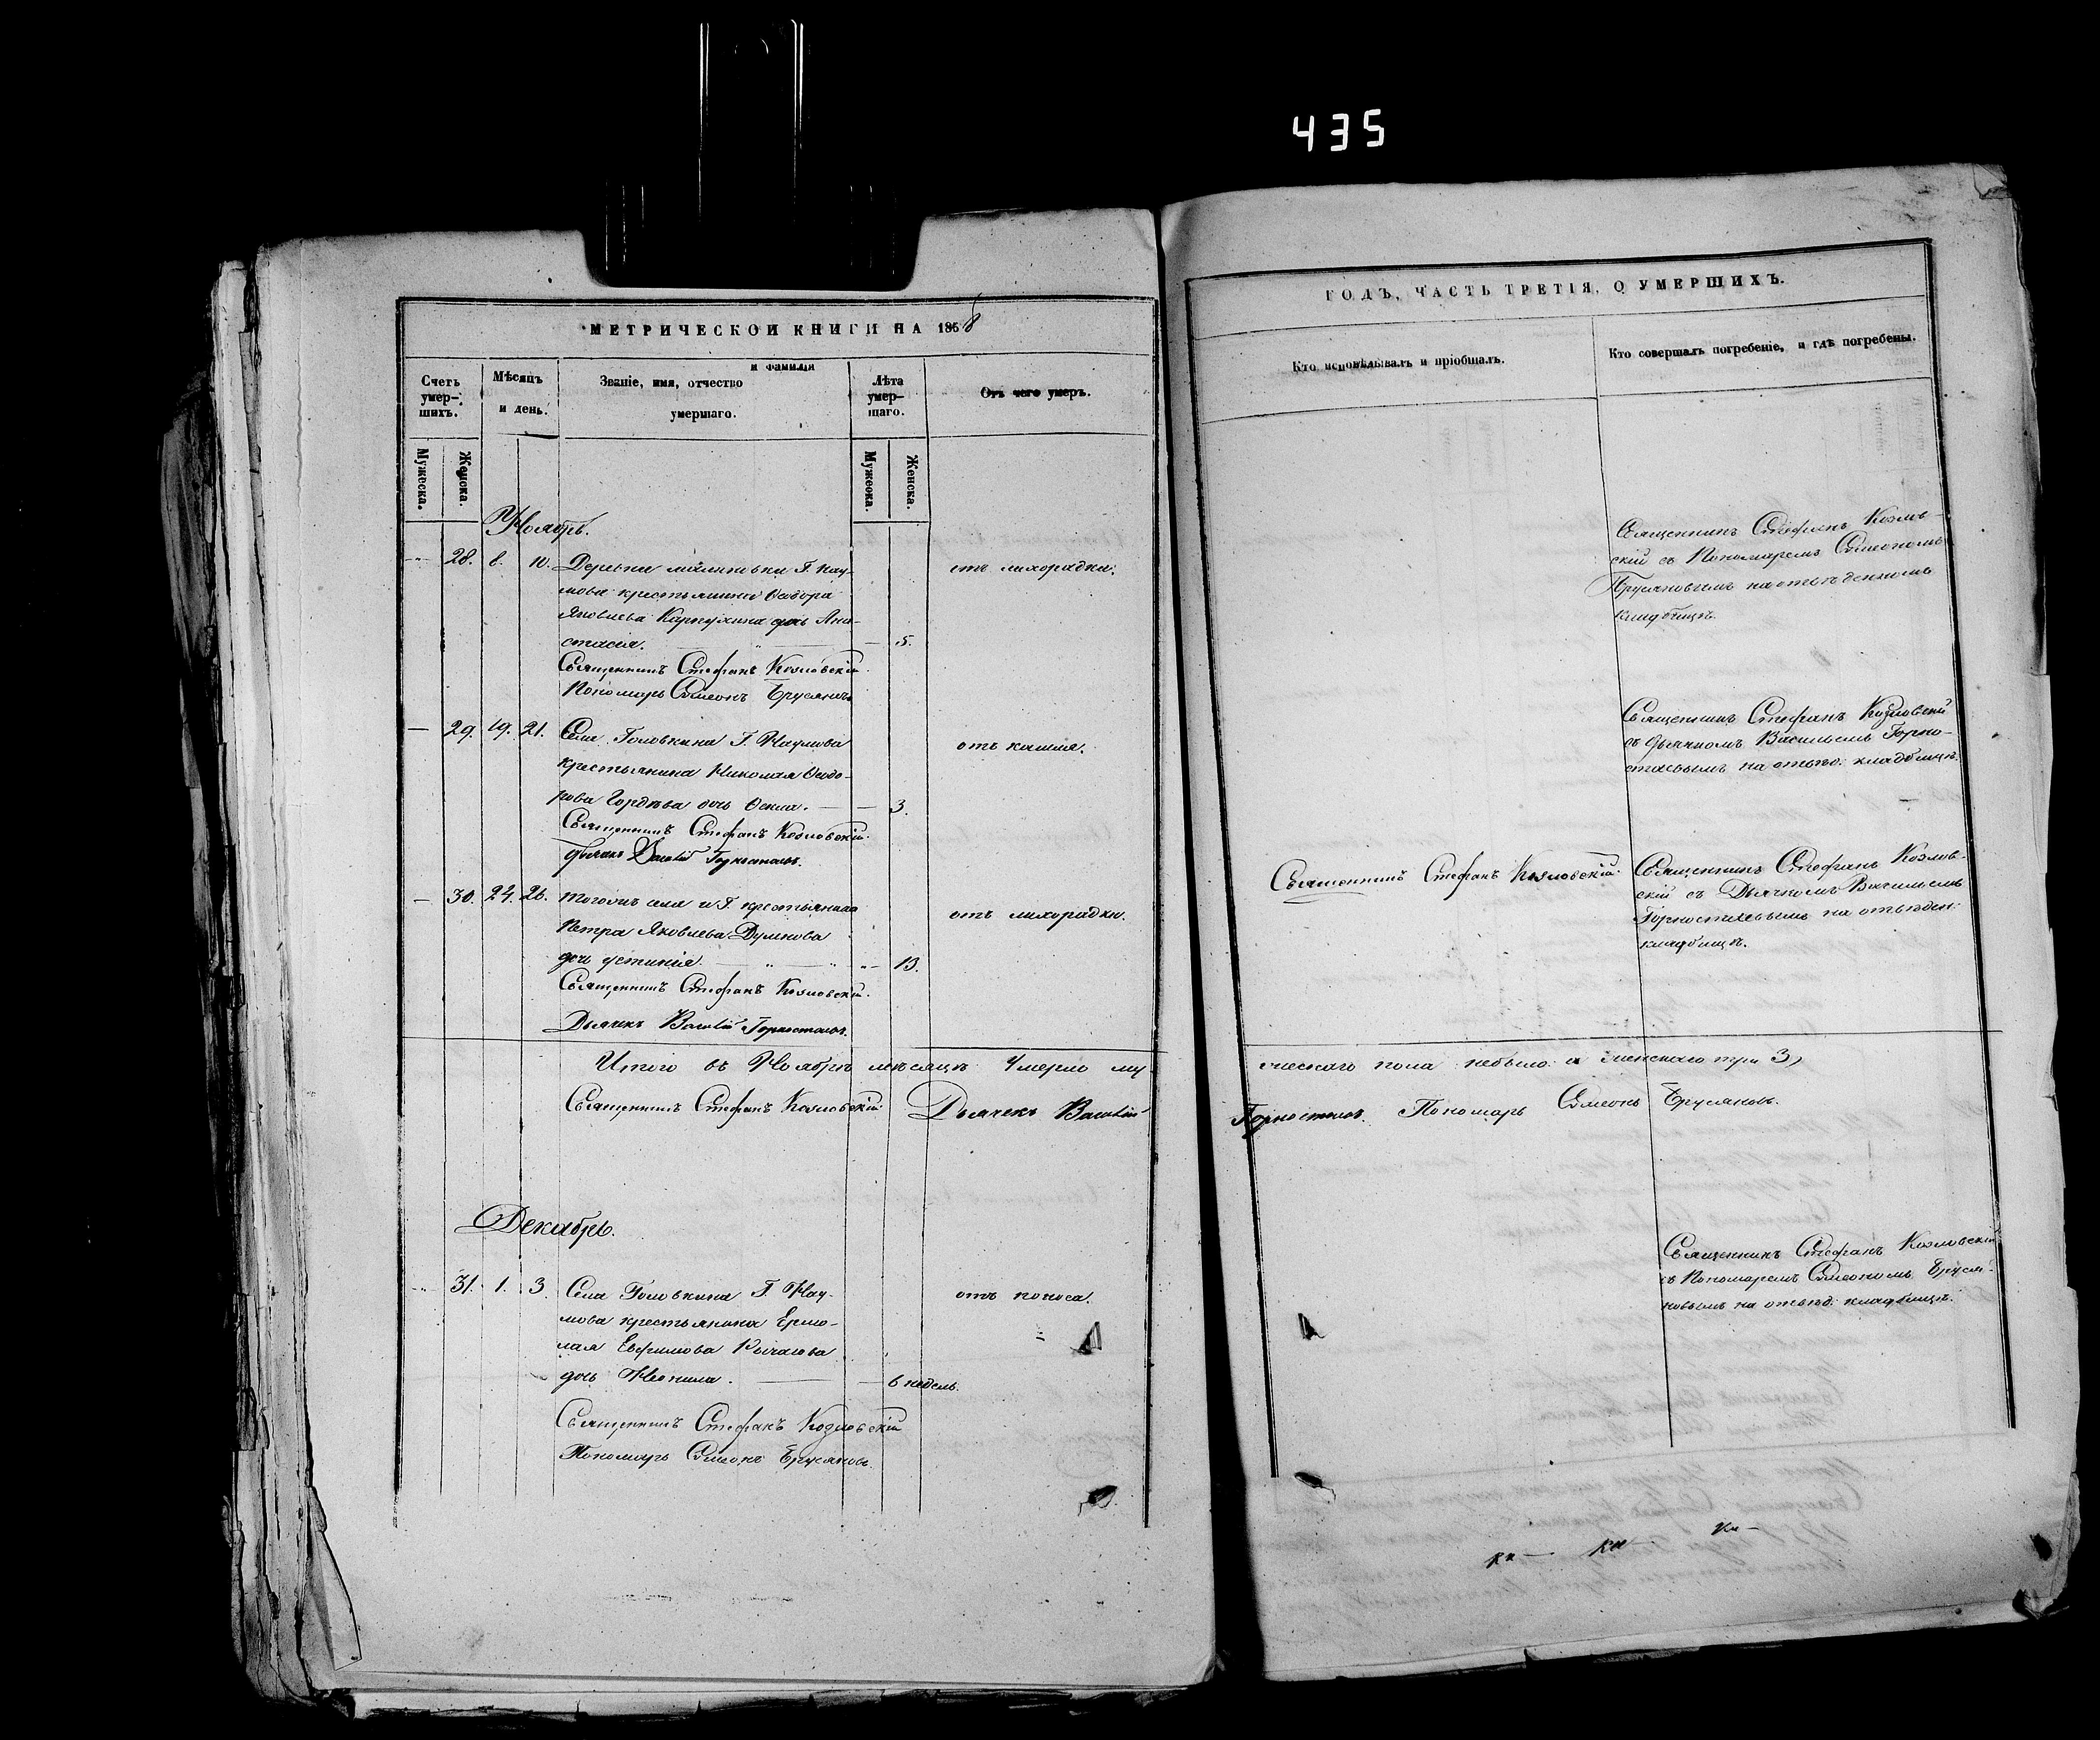 435
МЕТРИЧЕСКОЙ КНИГИ НА 1856
Счетъ умер-шихъ.
Мужеска.
Женска.
Мѣсяцъ и день.
и фамилія
Званіе, имя, отчество
умершаго.
Лѣта умер-шаго.
Мужеска.
Женска.
Отъ чего умеръ.
Ноябрь.
28. 8. 10. Деревни Г. Нау-
мова крестьянина Ѳеодора
Яковлева дочь Ана-
стасія. — 5.
отъ лихорадки.
Священникъ Стефанъ Козловскій.
Пономарь Симеонъ Брусяновъ
— 29. 19. 21. Села Головкина Г. Наумова
крестьянина Николая Ѳеодо-
рова Гордѣева дочь Ѳекла. — — 3.
отъ кашля.
Священникъ Стефанъ Козловскій.
Дьячекъ Василій Горностаевъ.
— 30. 24. 26. Тогожъ села и Г. крестьянина
Петра Яковлева
дочь Устинія. — 13.
отъ лихорадки.
Священникъ Стефанъ Козловскій.
Дьячекъ Василій Горностаевъ.
Итого въ Ноябрѣ мѣсяцѣ умерло му
Священникъ Стефанъ Козловскій Дьячекъ Василій
Декабрь.
31. 1. 3. Села Головкина Г. Нау-
мова крестьянина Ермо-
лая Евфимова
дочь Неонила. — 6 недель.
отъ поноса.
Священникъ Стефанъ Козловскій
Пономарь Симеонъ Брусяновъ.
ГОДЪ, ЧАСТЬ ТРЕТІЯ, О УМЕРШИХЪ.
Кто исповѣдывалъ и пріобщалъ.
Кто совершалъ погребеніе, и гдѣ погребены.
Священникъ Стефанъ Козлов-
скій съ Пономаремъ Симеономъ
Брусяновымъ на отведенномъ
кладбищѣ.
Священникъ Стефанъ Козловскій
съ дьячкомъ Васильемъ Горно-
стаевымъ на отвед: кладбищѣ.
Священникъ Стефанъ Козловскій.
Священникъ Стефанъ Козлов-
скій съ Дьячкомъ Васильемъ
Горностаевымъ на отведен:
кладбищѣ.
жескаго пола небыло а женскаго три 3)
Горностаевъ. Пономарь Симеонъ Брусяновъ.
Священникъ Стефанъ Козловскій
съ Пономаремъ Симеономъ Бруся-
новымъ на отвед: кладбищѣ.